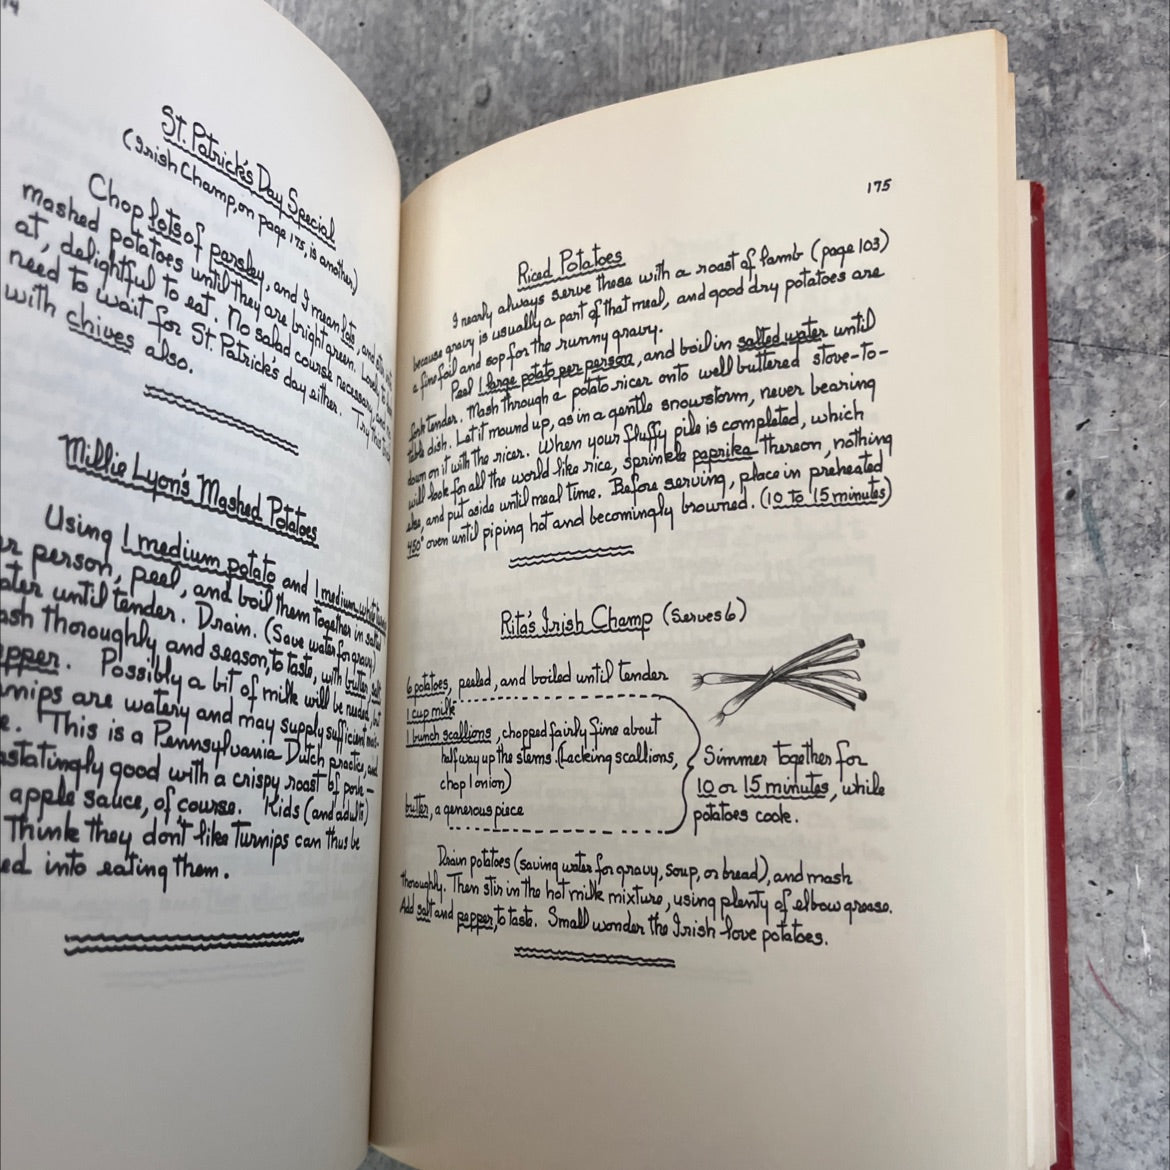 St. Patrick's Day Special
(Irish Champ, on page 175, is another)
Chop lots of parsley, and I mean lots, and
mashed potatoes until they are bright green. Lovely to
at, delightful to eat. No salad course necessary, and
need to wait for St. Patrick's day either. Try this
with chives also.
Millie Lyon's Mashed Potatoes
Using 1 medium potato and 1 medium white
person, peel, and boil them together in salted
until tender. Drain. (Save water for gravy)
thoroughly and season, to taste, with butter, salt
Possibly a bit of milk will be needed, but
are watery and may supply sufficient
This is a Pennsylvania Dutch practice, and
good with a crispy roast of pork –
apple sauce, of course. Kids (and adults)
Think they don't like turnips can thus be
into eating them.
175
Riced Potatoes
I nearly always serve these with a roast of lamb (page 103)
because gravy is usually a part of that meal, and good dry potatoes are
a fine foil and sop for the runny gravy.
Peel 1 large potato per person, and boil in salted water until
fork tender. Mash through a potato ricer onto well buttered stove-to-
table dish. Let it mound up, as in a gentle snowstorm, never bearing
down on it with the ricer. When your fluffy pile is completed, which
will look for all the world like rice, sprinkle paprika thereon, nothing
else, and put aside until meal time. Before serving, place in preheated
450° oven until piping hot and becomingly browned. (10 to 15 minutes)
Rita's Irish Champ (Serves 6)
6 potatoes, peeled, and boiled until tender
1 cup milk
1 bunch scallions, chopped fairly fine about
halfway up the stems. (Lacking scallions,
chop 1 onion)
butter, a generous piece
Simmer together for
10 or 15 minutes, while
potatoes cook.
Drain potatoes (saving water for gravy, soup, or bread), and mash
thoroughly. Then stir in the hot milk mixture, using plenty of elbow grease.
Add salt and pepper, to taste. Small wonder the Irish love potatoes.